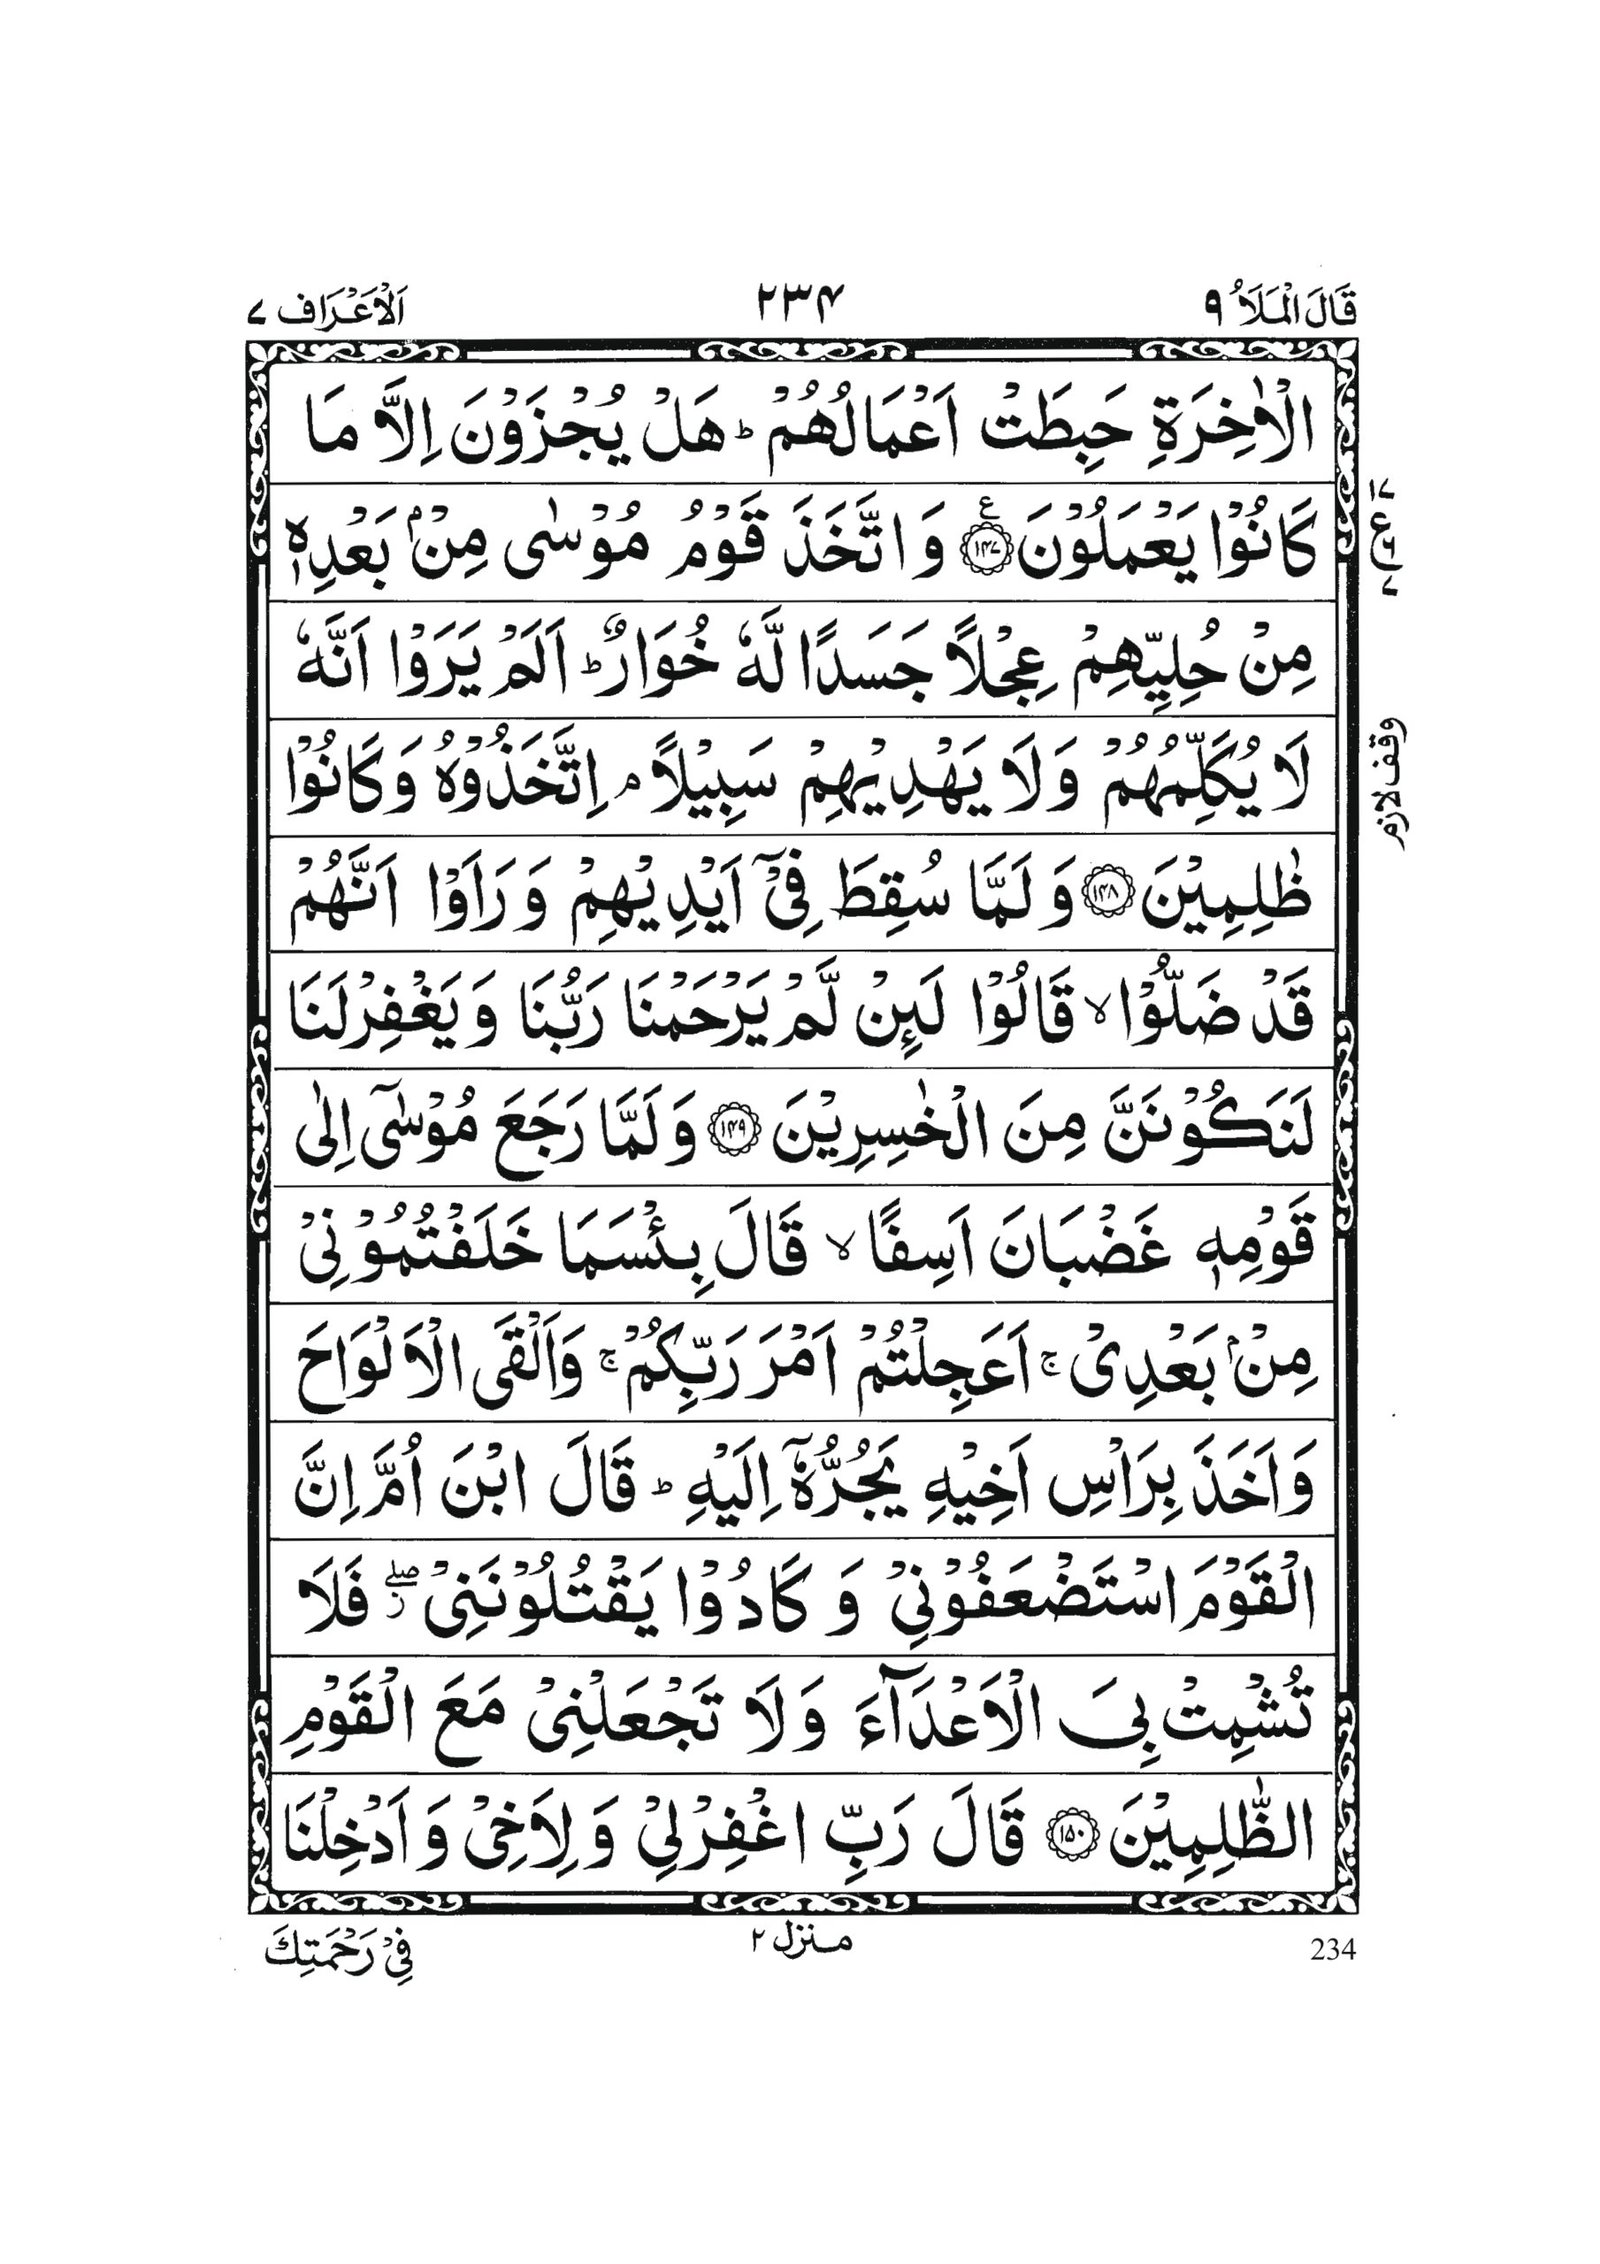 قَالَ الْمَلَاُ ۹
۲۳۴
اَلْاَعْرَاف ۷
الْاٰخِرَةِ حَبِطَتْ اَعْمَالُهُمْ ؕ هَلْ يُجْزَوْنَ اِلَّا مَا
كَانُوْا يَعْمَلُوْنَ ۧ﴿۱۴۷﴾ وَ اتَّخَذَ قَوْمُ مُوْسٰى مِنْۢ بَعْدِهٖ
مِنْ حُلِيِّهِمْ عِجْلًا جَسَدًا لَّهٗ خُوَارٌ ؕ اَلَمْ يَرَوْا اَنَّهٗ
لَا يُكَلِّمُهُمْ وَلَا يَهْدِيْهِمْ سَبِيْلًا ۘ اِتَّخَذُوْهُ وَكَانُوْا
ظٰلِمِيْنَ ﴿۱۴۸﴾ وَ لَمَّا سُقِطَ فِىْۤ اَيْدِيْهِمْ وَ رَاَوْا اَنَّهُمْ
قَدْ ضَلُّوْا ۙ قَالُوْا لَىِٕنْ لَّمْ يَرْحَمْنَا رَبُّنَا وَ يَغْفِرْ لَنَا
لَنَكُوْنَنَّ مِنَ الْخٰسِرِيْنَ ﴿۱۴۹﴾ وَ لَمَّا رَجَعَ مُوْسٰۤى اِلٰى
قَوْمِهٖ غَضْبَانَ اَسِفًا ۙ قَالَ بِئْسَمَا خَلَفْتُمُوْنِىْ
مِنْۢ بَعْدِىْ ۚ اَعَجِلْتُمْ اَمْرَ رَبِّكُمْ ۚ وَاَلْقَى الْاَلْوَاحَ
وَاَخَذَ بِرَاْسِ اَخِيْهِ يَجُرُّهٗۤ اِلَيْهِ ؕ قَالَ ابْنَ اُمَّ اِنَّ
الْقَوْمَ اسْتَضْعَفُوْنِىْ وَ كَادُوْا يَقْتُلُوْنَنِىْ ۖز فَلَا
تُشْمِتْ بِىَ الْاَعْدَآءَ وَ لَا تَجْعَلْنِىْ مَعَ الْقَوْمِ
الظّٰلِمِيْنَ ﴿۱۵۰﴾ قَالَ رَبِّ اغْفِرْ لِىْ وَ لِاَخِىْ وَ اَدْخِلْنَا
۱۷
ع
۶
۷
وقف لازم
234
منزل ۲
فِىْ رَحْمَتِكَ